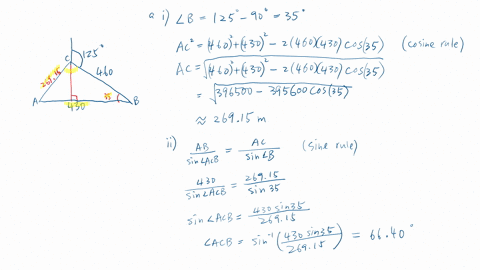 a i) ∠B = 125° - 90° = 35°
AC² = (460)² + (430)² - 2(460)(430) cos(35) (cosine rule)
AC = √(460)² + (430)² - 2(460)(430) cos(35)
= √396500 - 395600 cos(35)
≈ 269.15 m
ii) AB / sin∠ACB = AC / sin∠B (sine rule)
430 / sin∠ACB = 269.15 / sin 35
sin∠ACB = 430 sin35 / 269.15
∠ACB = sin⁻¹ (430 sin35 / 269.15) = 66.40°
C 125°
269.15 460
A 35 B
430